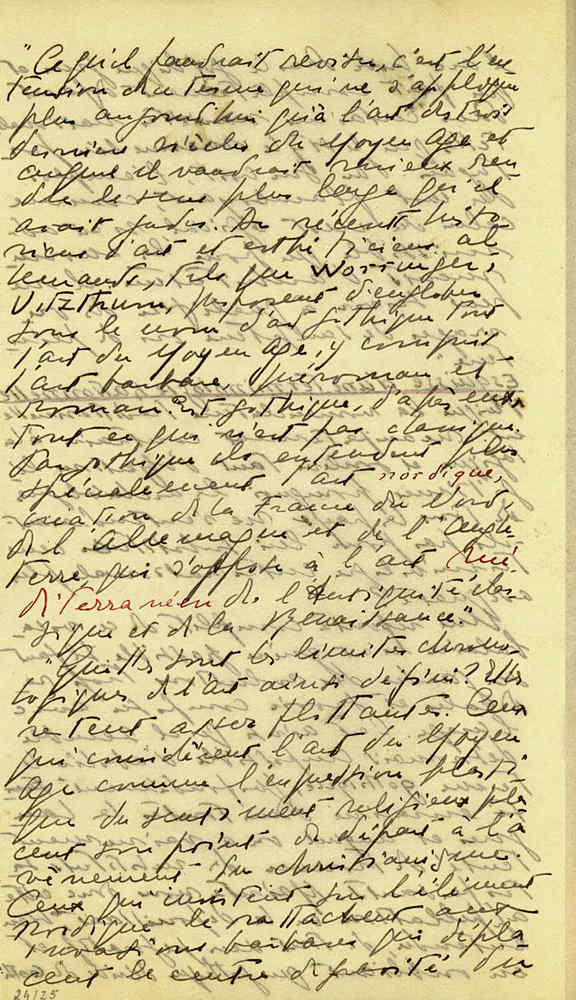 "Ce qu'il faudrait revoir, c'est l'ex-
tension du terme qui ne s'applique
plus aujourd'hui qu'à l'art des trois
derniers siècles du Moyen Age et
auquel il vaudrait mieux ren-
dre le sens plus large qu'il
avait jadis. De récents histo-
riens d'art et esthéticiens al-
lemands, tels que Worringer,
Vitzthum, proposent d'englober
sous le nom d'art gothique tout
l'art du Moyen Age, y compris
l'art barbare, préroman et
roman. Est gothique, d'après eux,
tout ce qui n'est pas classique.
Par gothique ils entendent plus
spécialement l'art nordique,
création de la France du Nord,
de l'Allemagne et de l'Angle-
terre, qui s'oppose à l'art mé-
diterranéen de l'Antiquité clas-
sique et de la Renaissance."
"Quelles sont les limites chrono-
logiques de l'art ainsi défini? Elles
restent assez flottantes. Ceux
qui considèrent l'art du Moyen
Age comme l'expression plasti-
que du sentiment religieux pla-
cent son point de départ à l'a-
vènement du christianisme.
Ceux qui insistent sur l'élément
nordique le rattachent aux
invasions barbares qui dépla-
cent le centre de gravité du
24/25